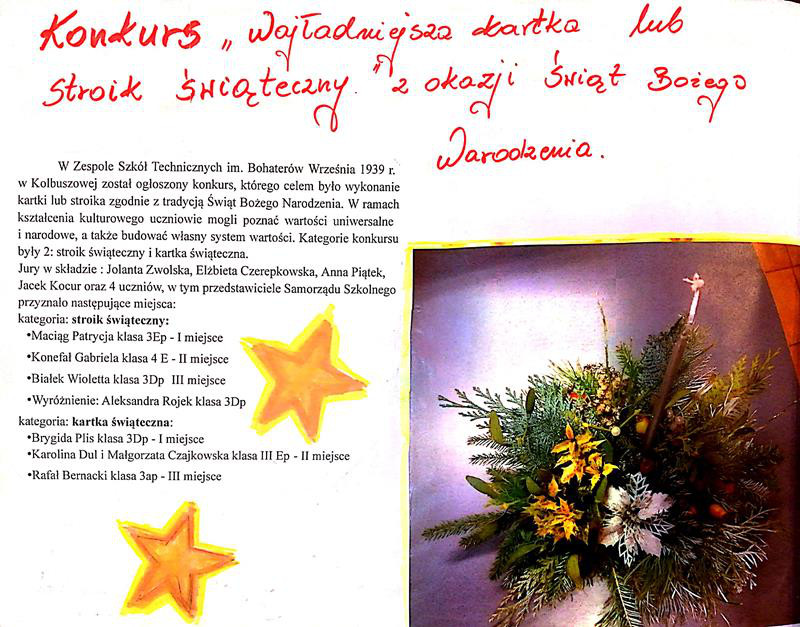 Konkurs „Najładniejsza kartka lub
stroik świąteczny." z okazji Świąt Bożego
Narodzenia.
W Zespole Szkół Technicznych im. Bohaterów Września 1939 r.
w Kolbuszowej został ogłoszony konkurs, którego celem było wykonanie
kartki lub stroika zgodnie z tradycją Świąt Bożego Narodzenia. W ramach
kształcenia kulturowego uczniowie mogli poznać wartości uniwersalne
i narodowe, a także budować własny system wartości. Kategorie konkursu
były 2: stroik świąteczny i kartka świąteczna.
Jury w składzie : Jolanta Zwolska, Elżbieta Czerepkowska, Anna Piątek,
Jacek Kocur oraz 4 uczniów, w tym przedstawiciele Samorządu Szkolnego
przyznało następujące miejsca:
kategoria: stroik świąteczny:
•Maciąg Patrycja klasa 3Ep - I miejsce
•Konefał Gabriela klasa 4 E - II miejsce
•Białek Wioletta klasa 3Dp III miejsce
•Wyróżnienie: Aleksandra Rojek klasa 3Dp
kategoria: kartka świąteczna:
•Brygida Plis klasa 3Dp - I miejsce
•Karolina Dul i Małgorzata Czajkowska klasa III Ep - II miejsce
•Rafał Bernacki klasa 3ap - III miejsce